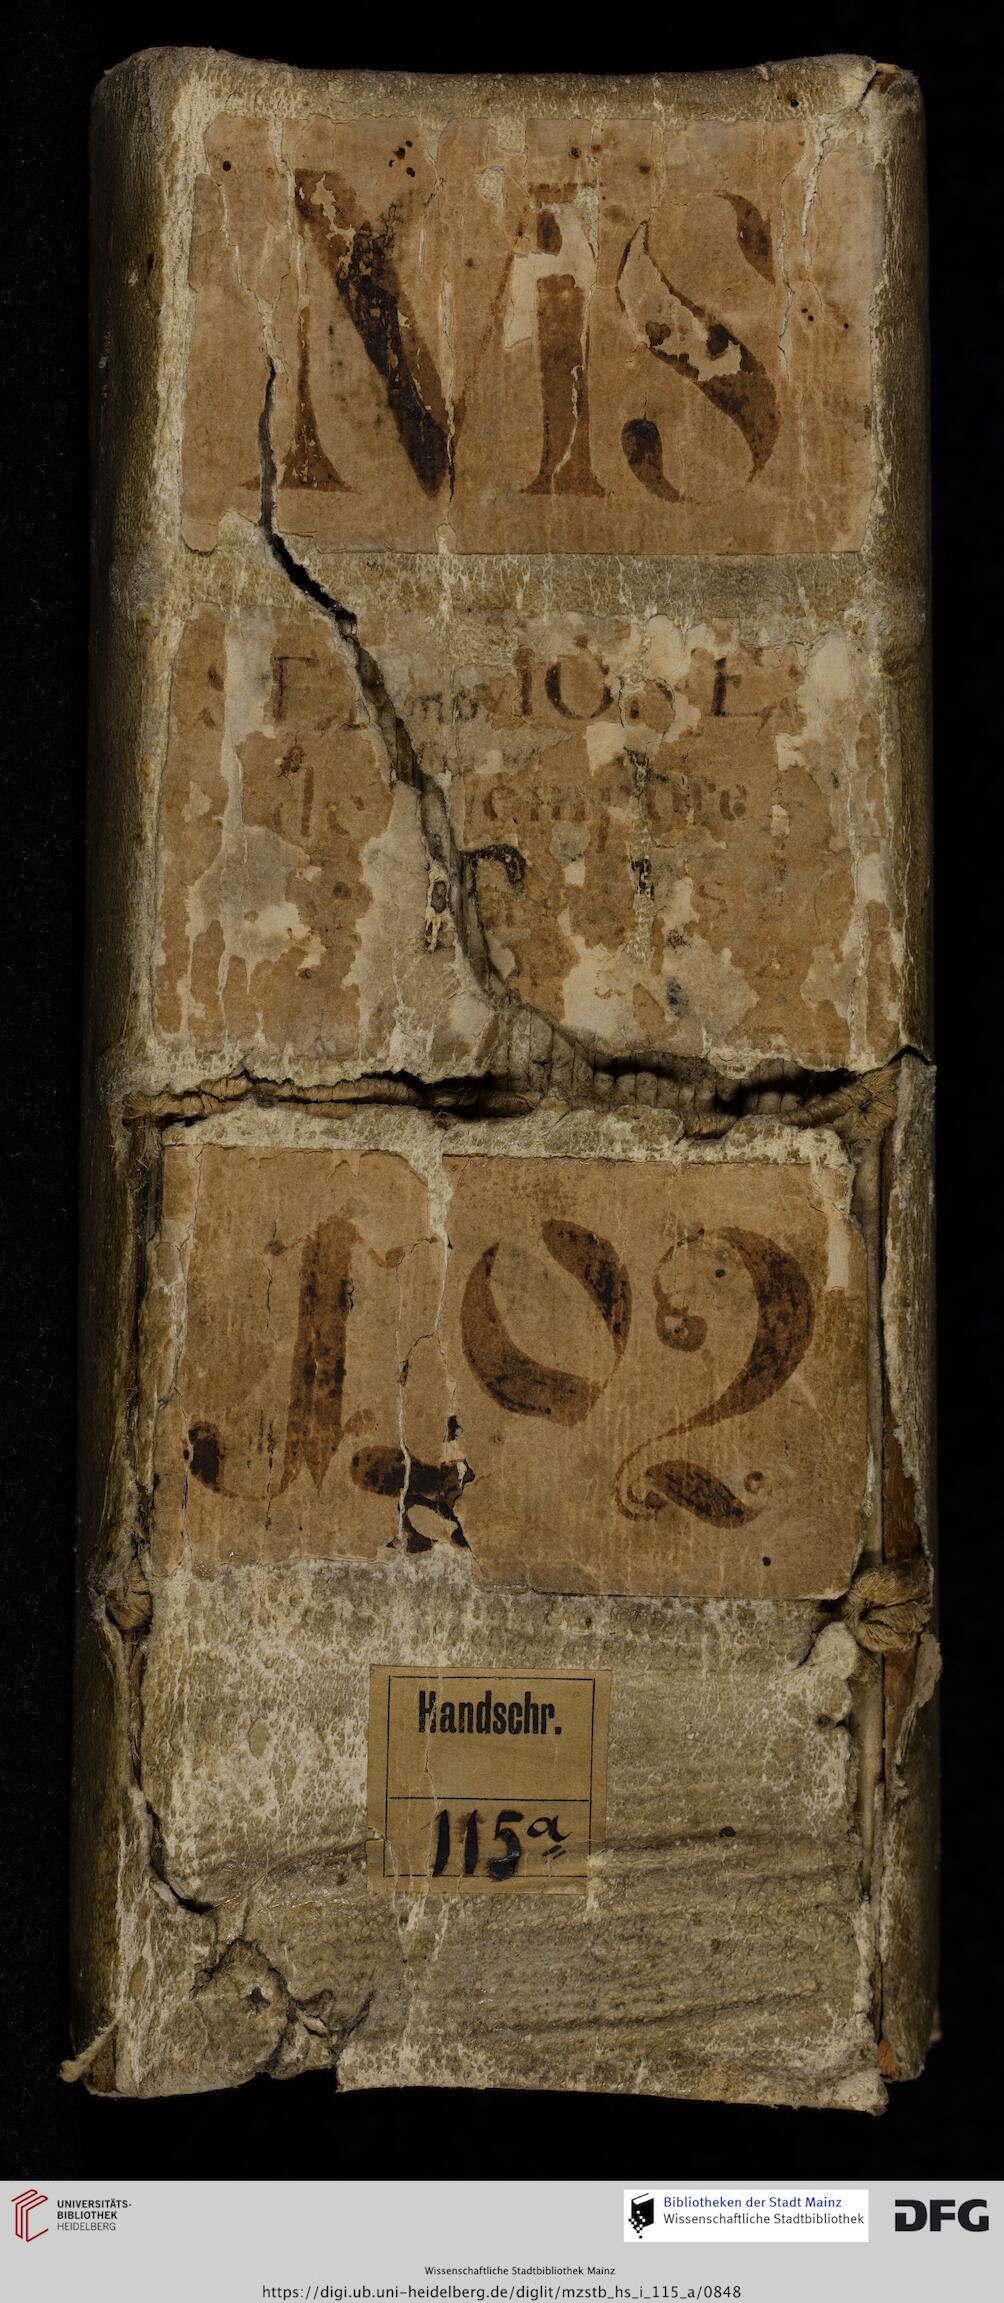 MS
de tempore
102
Handschr.
115 a
UNIVERSITÄTS-
BIBLIOTHEK
HEIDELBERG
Bibliotheken der Stadt Mainz
Wissenschaftliche Stadtbibliothek
DFG
Wissenschaftliche Stadtbibliothek Mainz
https://digi.ub.uni-heidelberg.de/diglit/mzstb_hs_i_115_a/0848